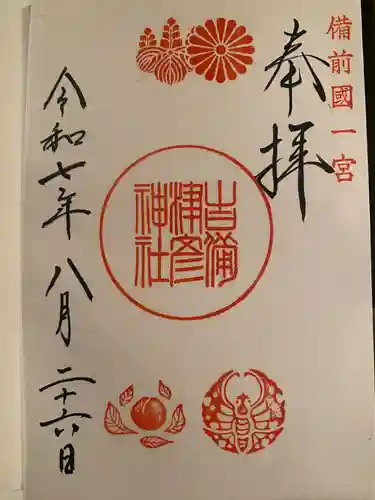 備前國一宮
奉拝
吉備
津彦
神社
令和七年八月二十六日